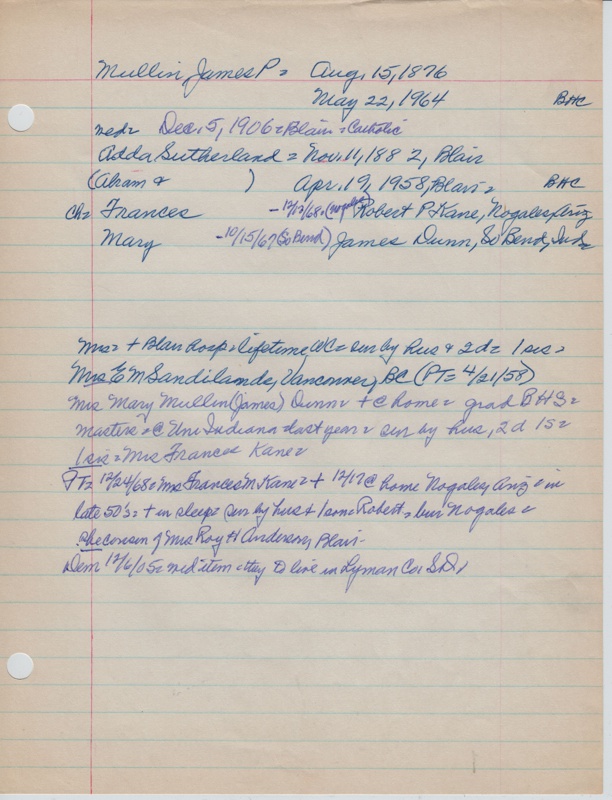 Mullin, James P = Aug. 15, 1876
May 22, 1964 BHC
med= Dec. 5, 1906 = Blair = Catholic
Adda Sutherland = Nov. 11, 188 2, Blair
(Abram & ) Apr. 19, 1958, Blair = BHC
ch= Frances - 12/17/68 = (Nogales) Robert P Kane, Nogales, Ariz
Mary - 10/15/67 (So Bend) James Dunn, So Bend, Ind =
Mrs = + Blair Hosp = lifetime WC = sur by hus & 2d = 1 sis =
Mrs E M Sandilands, Vancouver, BC (PT = 4/21/58)
Mrs Mary Mullin (James) Dunn = + @ home = grad BHS =
masters = @ Uni Indiana = last year = sur by hus, 2d 1s =
1 sis = Mrs Frances Kane =
PT= 12/24/68 = Mrs Frances M Kane = + 12/17 @ home Nogales, Ariz = in
late 50's = + in sleep = sur by hus + 1 son = Robert = bur Nogales =
She cousin of Mrs Roy H Anderson, Blair -
Dem 12/6/05 = med item = they to live in Lyman Co, S.D.,